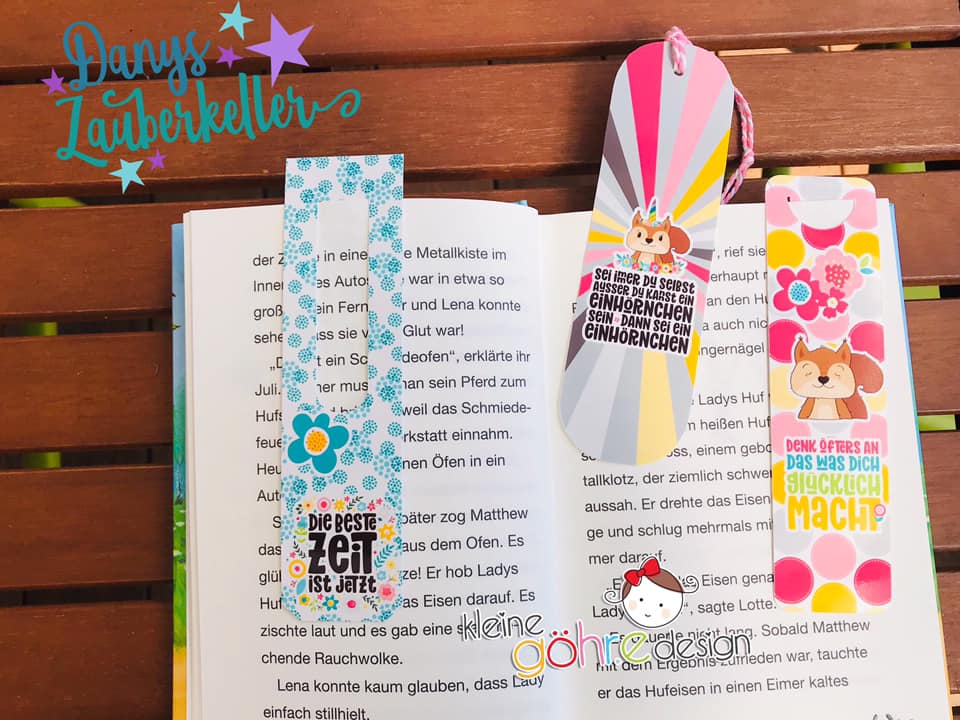 Danys
Zauberkeller
der in eine Metallkiste im
Innern des Autos war in etwa so
groß ein Fern und Lena konnte
sehen, dass sie Glut war!
„D ein Schmiedeofen“, erklärte ihr
Juli. mus man sein Pferd zum
Hufs weil das Schmiede-
feue einnahm.
Heu Öfen in ein
Auto
S später zog Matthew
das aus dem Ofen. Es
glü Er hob Ladys
Huf das Eisen darauf. Es
zischte laut und es gab eine
chende Rauchwolke.
Lena konnte kaum glauben, dass Lady
einfach stillhielt.
DIE BESTE
ZEIT
IST JETZT
SEI IMER DU SELBST
AUSSER DU KANST EIN
EINHÖRNCHEN
SEIN DANN SEI EIN
EINHÖRNCHEN
rief
an den
auch nicht
Ladys Huf
heißen Huf
tallklotz, der ziemlich schwer
aussah. Er drehte das Eisen
ge und schlug mehrmals mit
mer darauf.
Eisen
Lady sagte Lotte.
Es dauerte nicht lang. Sobald Matthew
mit dem Ergebnis zufrieden war, tauchte
er das Hufeisen in einen Eimer kaltes
DENK ÖFTERS AN
DAS WAS DICH
GLÜCKLICH
MACHT
kleine
göhre design